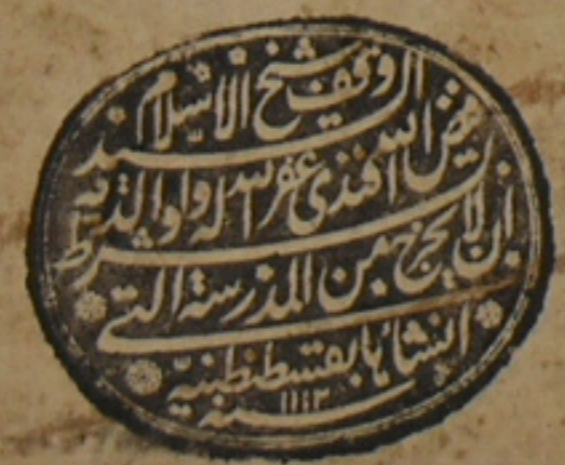 وقف شيخ الاسلام
السيد فيض الله افندى غفر الله له ولوالديه
بشرط ان لا يخرج من المدرسة التي
انشأها بقسطنطنية
سنة ١١١٣